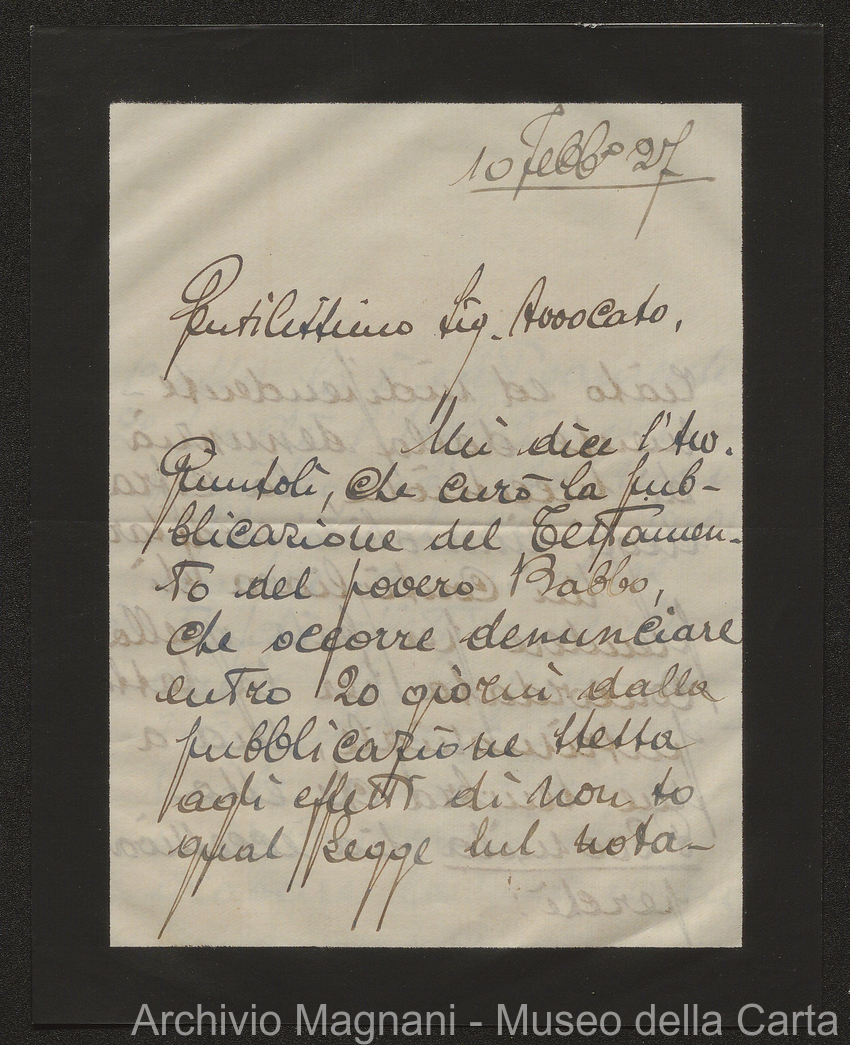 10 Febb° 27
Gentilissimo Sig. Avvocato,
Mi dice l'Avv.
Giuntoli, che curò la pub-
blicazione del Testamen-
to del povero Babbo,
che occorre denunciare
entro 20 giorni dalla
pubblicazione stessa
agli effetti di non so
qual Legge sul nota-
Archivio Magnani - Museo della Carta